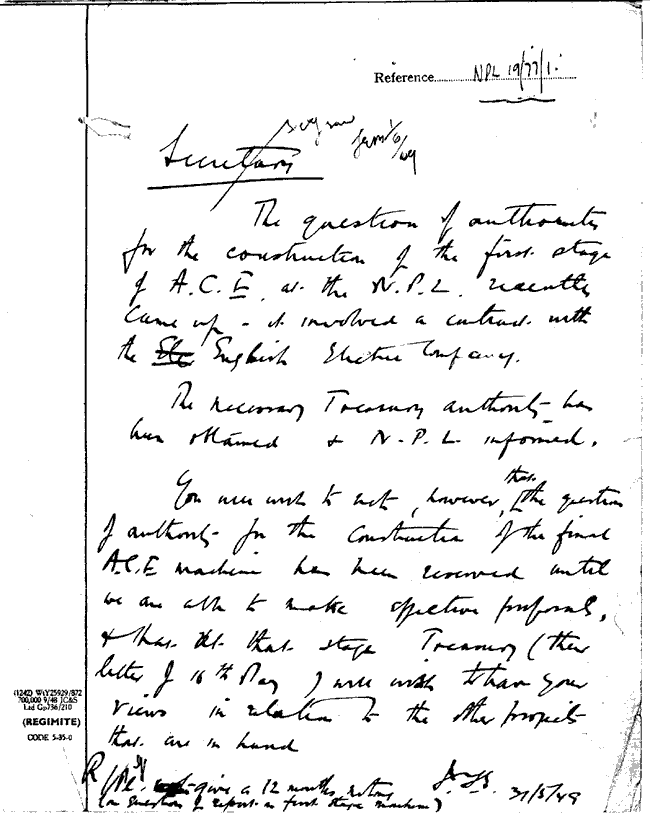 Reference NPL 19/77/1.
Secretary
The question of authority
for the construction of the first stage
of A.C.E. at the N.P.L. recently
came up - it involved a contract with
the English Electric Company.
The necessary Treasury authority has
been obtained & N.P.L. informed.
You will wish to note, however, that the question
of authority for the construction of the final
A.C.E machine has been reserved until
we are able to make effective proposals,
& that at that stage Treasury (their
letter of 16th May) will wish to have your
views in relation to the other projects
that are in hand
give a 12 months
(on question of report on first stage machine)
31/5/49
(1242) Wt Y25929/872
700,000 9/48 JC&S
Ltd Gp736/210
(REGIMITE)
CODE 5-35-0